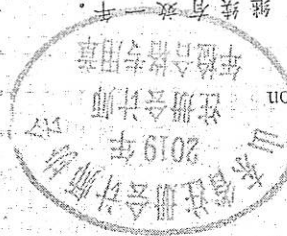 山东省注册会计师协会
2019年
注册会计师
on
年检合格专用章
继续有效一年.